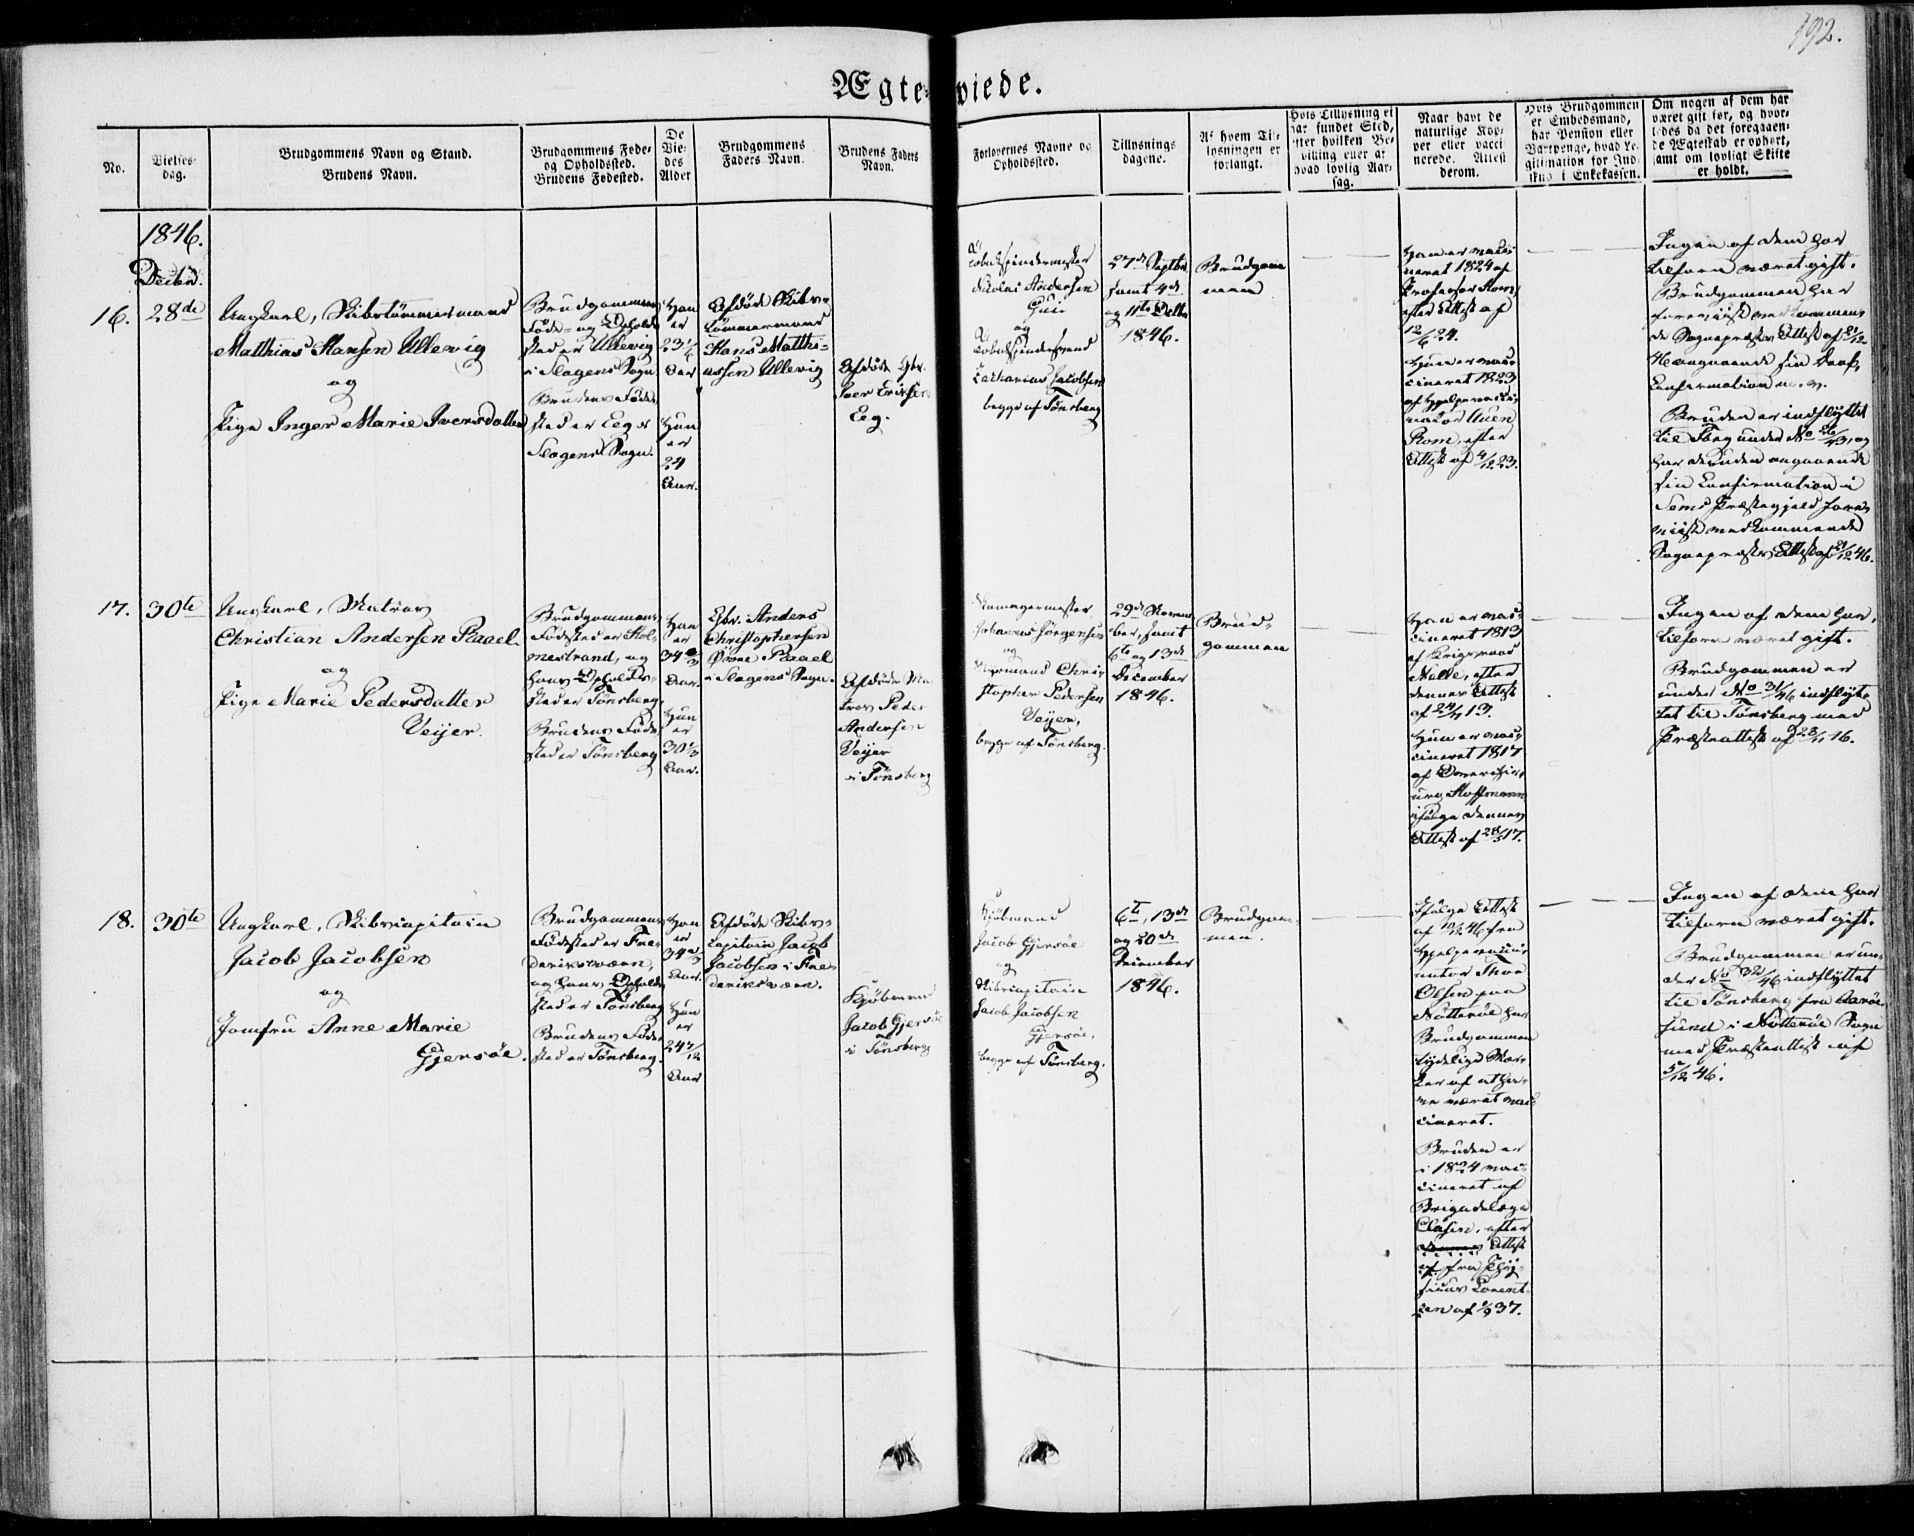 192.
Ægteviede.
No.
Vielses-
dag.
Brudgommens Navn og Stand.
Brudens Navn.
Brudgommens Føde-
og Opholdssted.
Brudens Fødested.
De
Vie-
des
Alder
Brudgommens
Faders Navn.
Brudens Faders
Navn.
Forlovernes Navne og
Opholdsted.
Tillysnings
dagene.
Af hvem Til-
lysningen er
forlangt.
Hvis Tillysning ei
har fundet Sted,
efter hvilken Be-
villing eller af
hvad lovlig Aar-
sag.
Naar havt de
naturlige Kop-
per eller vacci
nerede. Attest
derom.
Hvis Brudgommen
er Embedsmand,
har Pension eller
Vartpenge, hvad Le-
gitimation for Ind-
skud i Enkekassen.
Om nogen af dem har
været gift før, og hvor-
ledes da det foregaaen-
de Ægteskab er ophørt,
samt om lovligt Skifte
er holdt.
1846.
Decbr.
16.
28de
Ungkarl, Skibstømmermand
Matthias Hansen Ullevig
og
Pige Inger Marie Iversdatter
Brudgommens
Føde- og Opholds
sted er Ullevig
i Slagens Sogn
Brudens Føde
sted er Eeg i
Slagens Sogn.
Han
er
23 1/6
Aar
Hun
er
24
Aar.
Afdøde Skibs-
tømmermand
Hans Matthi-
assen Ullevig
Afdøde Gbr.
Iver Eriksen
Eeg.
Tobakspindermester
Nicolai Andersen
og
Tobakspindersvend
Zacharias Jacobsen
begge af Tønsberg
27de Septbr
samt 4de
og 11te Octbr
1846.
Brudgom
men
Han er vacci
neret 1824 af
Professor
efter Attest af
12/6 24.
Hun er vacci
cineret 1823
af Hjelpevacci-
nateur
Rom, efter
Attest af 4/12 23.
Ingen af dem har
tilforn været gift.
Brudgommen har
foreviist vedkommen-
de Sognepræsts Attest af 21/12
46 angaaende sin Daab,
Confirmation m. v.
Bruden er indflyttet
til Tbrg under No 26/43, og
har desuden angaaende
sin Confirmation i
Sems Præstegjeld fore-
viist vedkommende
Sognepræsts Attest af 21/12 46.
17.
30te
Ungkarl, Matros
Christian Andersen Raael
og
Pige Marie Pedersdatter
Veijer.
Brudgommens
Fødested er Hol-
mestrand, og
hans Opholds-
sted er Tønsberg,
Brudens Føde
sted er Tønsberg
Han
er
34 2/3
Aar.
Hun
er
30 1/3
Aar.
Gbr. Anders
Christophersen
Øvre Raael
i Slagens Sogn.
Afdøde Ma
tros Peder
Andersen
Veijer
i Tønsberg
Skomagermester
Johannes Jørgensen
og
Styrmand Chris
stopher Pedersen
Veijer,
begge af Tønsberg.
29de Novem
ber, samt
6te og 13de
December
1846.
Brud-
gommen
Han er vac-
cineret 1813
af Krigsraad
Nolle, efter
dennes Attest
af 24/7 13.
Hun er vac-
cineret 1817
af Overchir-
urg Hoffmann
ifølge dennes
Attest af 28/5 17.
Ingen af dem har
tilforn været gift.
Brudgommen er
under No 31/46 indflyt-
tet til Tønsberg med
Præsteattest af 28/11 46.
18.
30te
Ungkarl, Skibscapitain
Jacob Jacobsen
og
Jomfru Anne Marie
Gjersøe.
Brudgommens
Fødested er Fre-
deriksværn,
og hans Opholds
sted er Tønsberg
Brudens Føde
sted er Tønsberg.
Han
er
34 2/3
Aar.
Hun
er
24 7/12
Aar
Afdøde Skibs-
capitain Jacob
Jacobsen i Fre-
deriksværn.
Kjøbmand
Jacob Gjersøe
i Tønsberg
Kjøbmand
Jacob Gjersøe
og
Skibscapitain
Jacob Jacobsen
Gjersøe,
begge af Tønsberg.
6te, 13de
og 20de
December
1846.
Brudgom
men.
Ifølge Attest
af 10/12 46 fra
Hjelpevacci-
nateur Thor
Olsen paa
Nøtterøe har
Brudgommen
tydelige Mær-
ker af at ha-
ve været vac
cineret.
Bruden er
i 1824 vac-
cineret af
Brigadelæge
Clasen, efter
dennes Attest
af fra Phy-
sicus Lorent-
zen af 1/9 37.
Ingen af dem har
tilforn været gift.
Brudgommen er un-
der No 32/46 indflyttet
til Tønsberg fra Aarøe-
sund i Nøtterøe Sogn
med Præsteattest af
5/12 46.